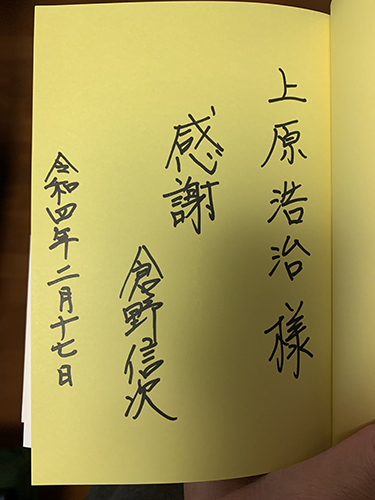 上原浩治様
感謝
倉野信次
令和四年二月十七日